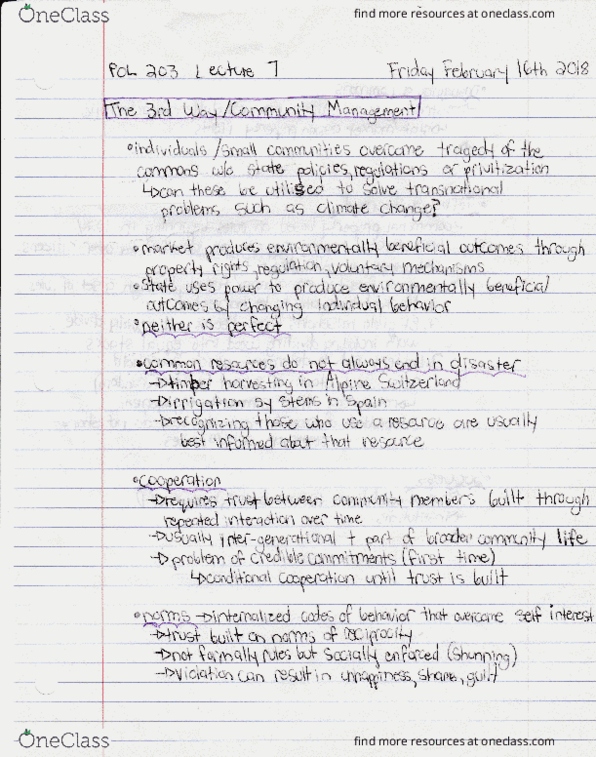 OneClass
find more resources at oneclass.com
POL 203 Lecture 7 Friday February 16th 2018
The 3rd Way/Community Management
•individuals/small communities overcome tragedy of the
commons w/o state policies, regulations or privitization
↳can these be utilised to solve transnational
problems such as climate change?
•market produces environmentally beneficial outcomes through
property rights, regulation, voluntary mechanisms
•State uses power to produce environmentally beneficial
outcomes by changing individual behavior
•neither is perfect
•common resources do not always end in disaster
→timber harvesting in Alpine Switzerland
→irrigation systems in Spain
→recognizing those who use a resource are usually
best informed about that resource
•cooperation
→requires trust between community members built through
repeated interaction over time
→usually inter-generational + part of broader community life
→problem of credible commitments (first time)
↳conditional cooperation until trust is built
•norms →internalized codes of behavior that overcome self interest
→trust built on norms of reciprocity
→not formally rules but socially enforced (shunning)
→violation can result in unhappiness, shame, guilt
OneClass
find more resources at oneclass.com